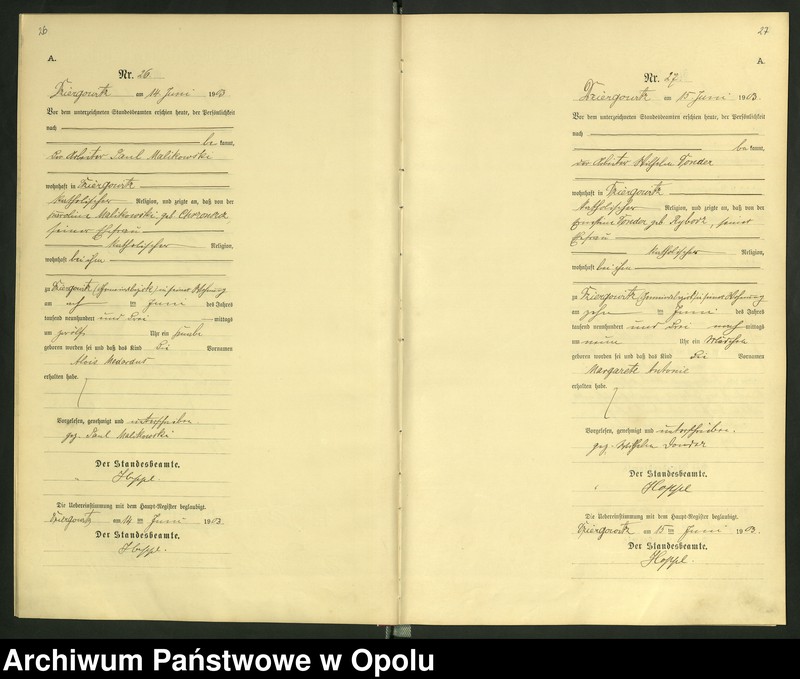 26
A.
Nr. 26
Dziergowitz am 14 Juni 1903
Vor dem unterzeichneten Standesbeamten erschien heute, der Persönlichkeit
nach
be kannt,
der Arbeiter Paul Malikowski
wohnhaft in Dziergowitz
katholischer Religion, und zeigte an, daß von der
Malikowski geb.
seiner Ehefrau
katholischer Religion,
wohnhaft bei ihm
zu Dziergowitz in seiner Wohnung
am Juni des Jahres
tausend neunhundert und drei mittags
um zwölf Uhr ein Knabe
geboren worden sei und daß das Kind die Vornamen
Alois
erhalten habe.
Vorgelesen, genehmigt und unterschrieben.
gez. Paul Malikowski
Der Standesbeamte.
Hoppe.
Die Uebereinstimmung mit dem Haupt-Register beglaubigt.
Dziergowitz am 14 ten Juni 1903.
Der Standesbeamte.
Hoppe.
27
A.
Nr. 27
Dziergowitz am 15 Juni 1903.
Vor dem unterzeichneten Standesbeamten erschien heute, der Persönlichkeit
nach
be kannt,
der Arbeiter Wilhelm Donder
wohnhaft in Dziergowitz
katholischer Religion, und zeigte an, daß von der
Donder geb. seiner
Ehefrau
katholischer Religion,
wohnhaft bei ihm
zu Dziergowitz in seiner Wohnung
am zehn ten Juni des Jahres
tausend neunhundert und drei nach mittags
um neun Uhr ein Mädchen
geboren worden sei und daß das Kind die Vornamen
Margarete Antonie
erhalten habe.
Vorgelesen, genehmigt und unterschrieben.
gez. Wilhelm Donder
Der Standesbeamte.
Hoppe
Die Uebereinstimmung mit dem Haupt-Register beglaubigt.
Dziergowitz am 15 ten Juni 1903.
Der Standesbeamte.
Hoppe.
Archiwum Państwowe w Opolu